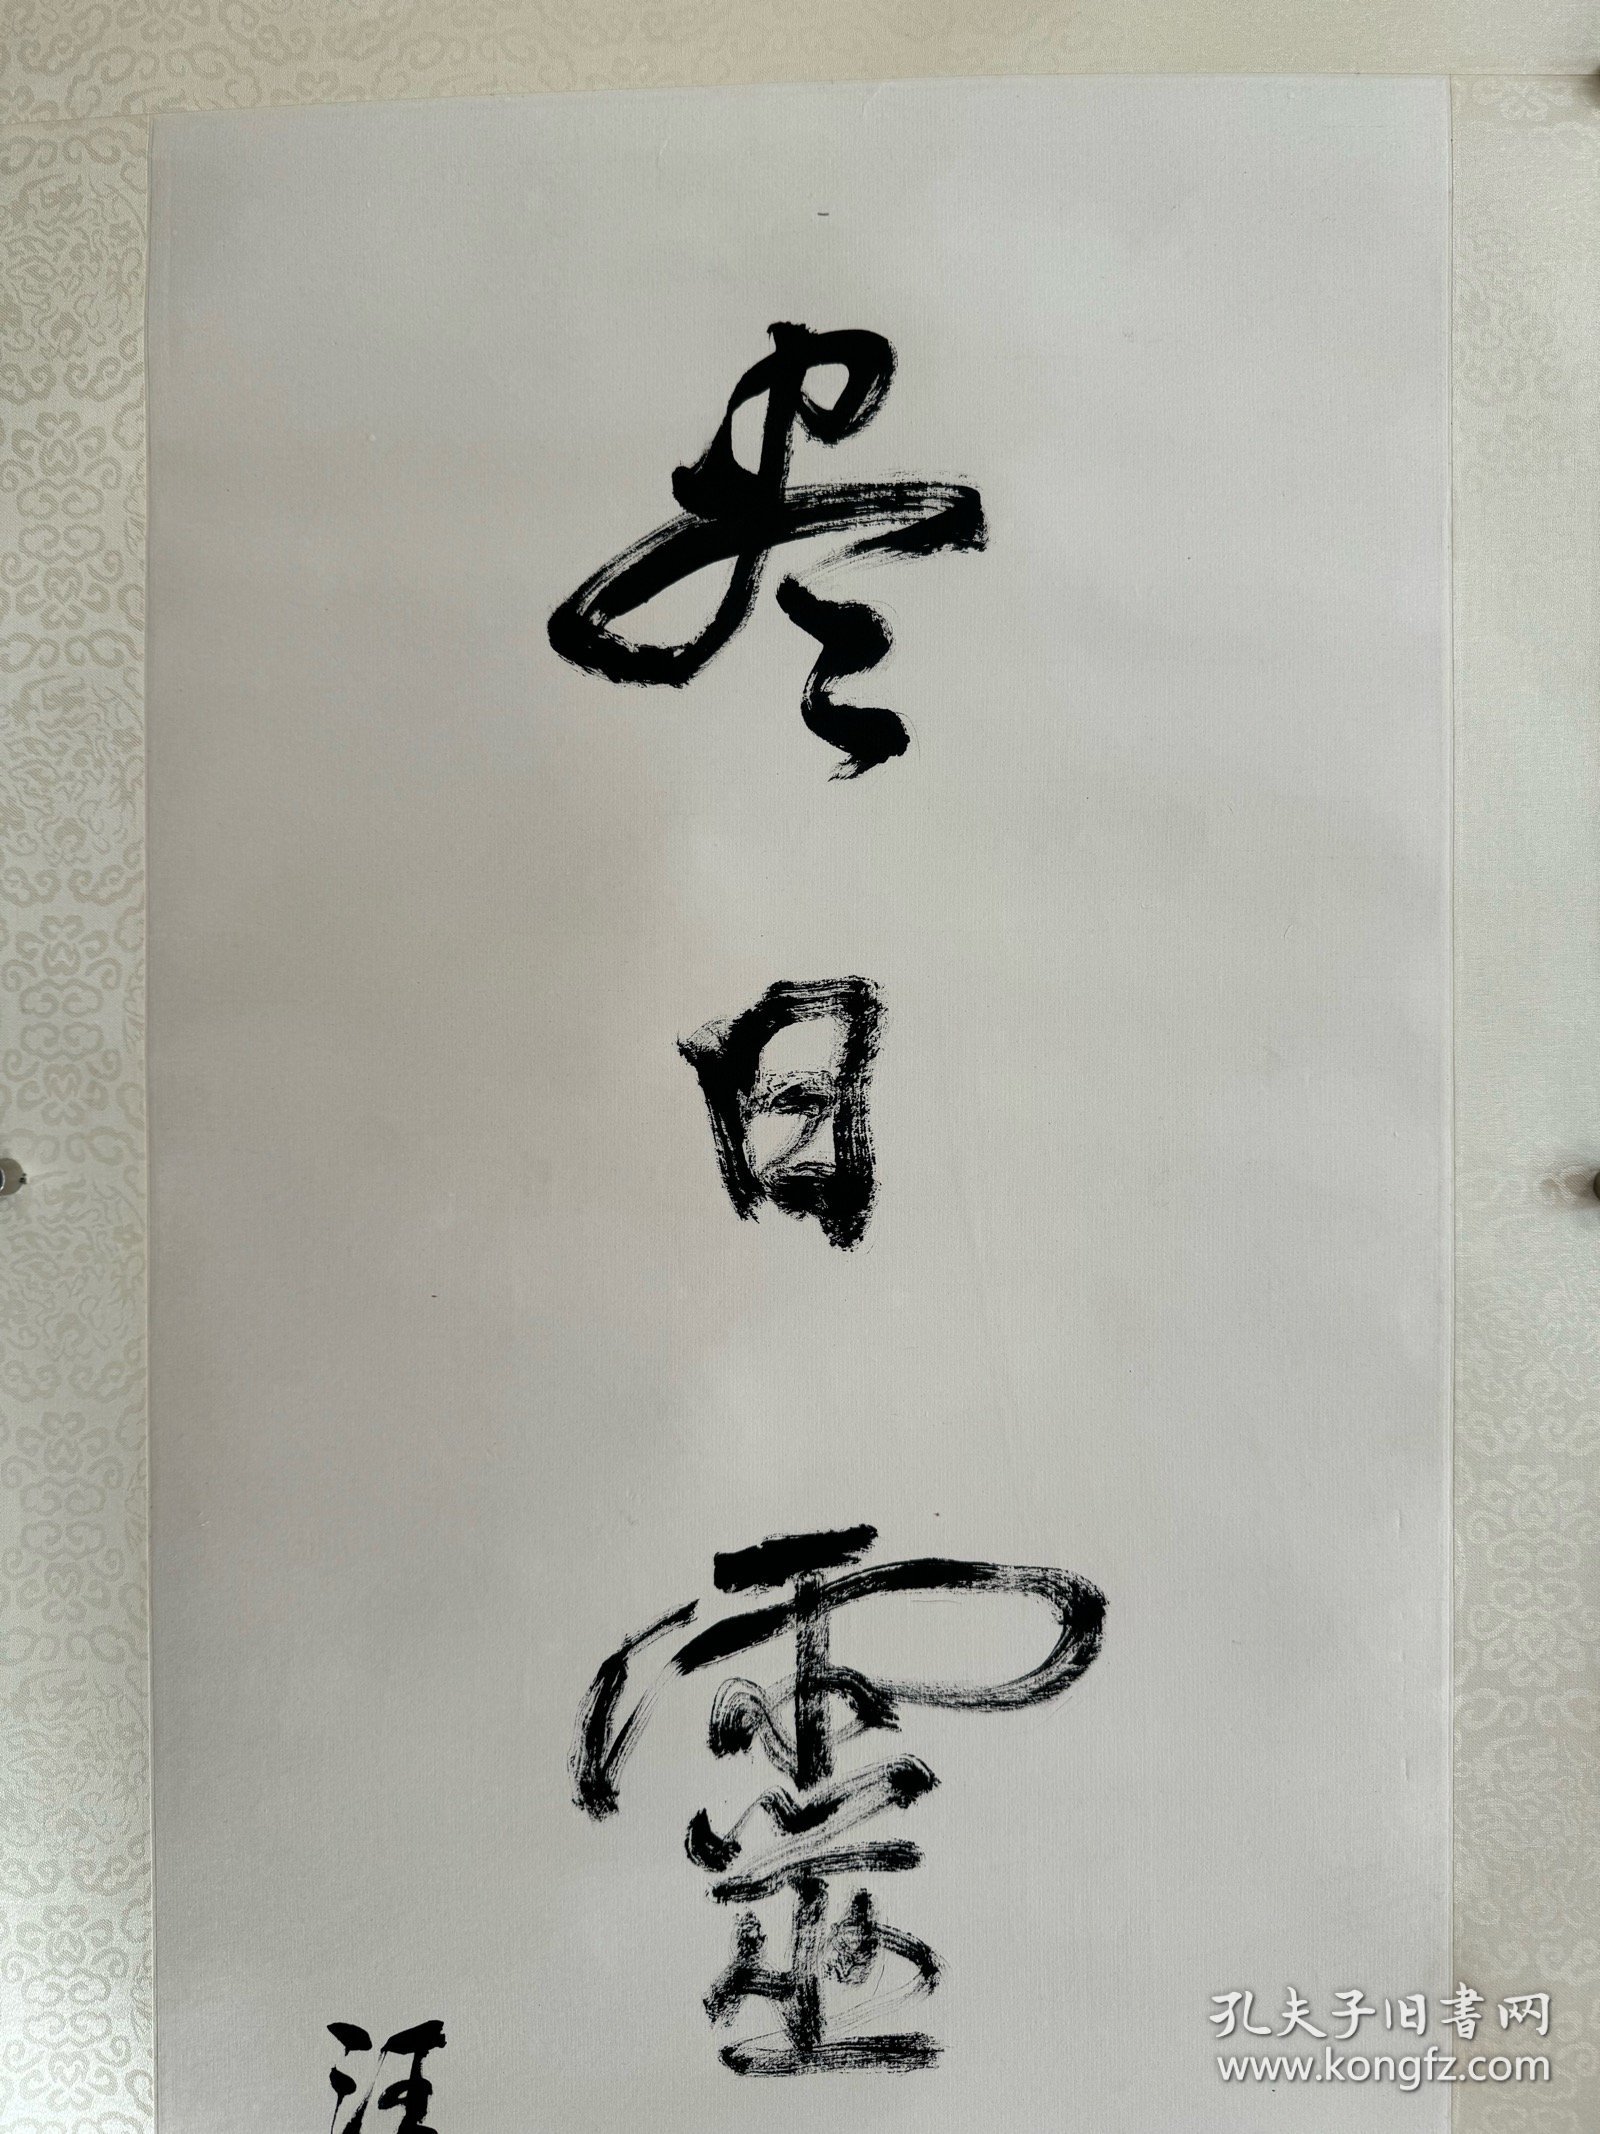 尽日靈
汪
孔夫子旧書网
www.kongfz.com